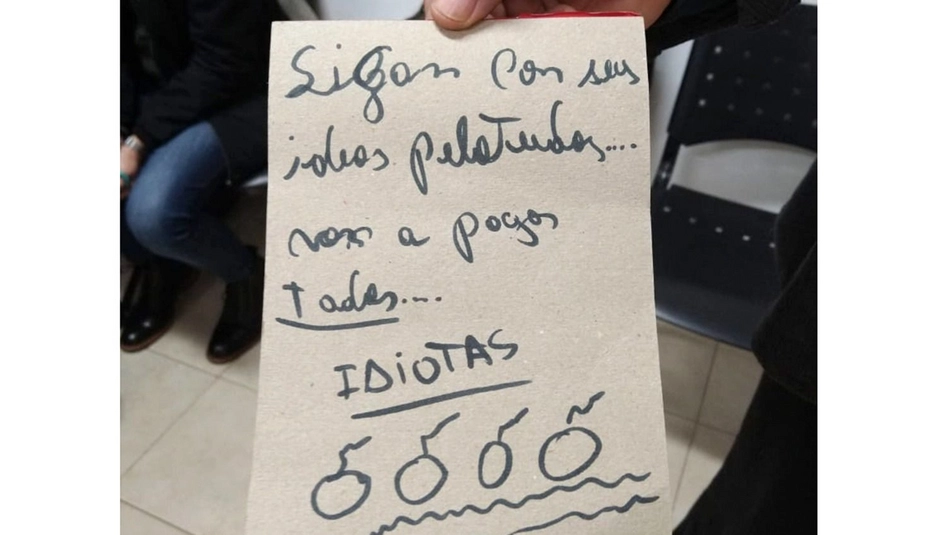 Sigan con sus
ideas peloTudas....
van a pagar
Todos....
IDiOTAS